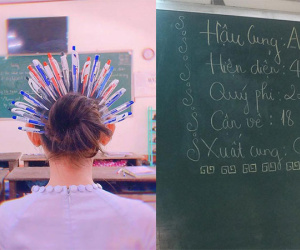 Hậu Cung: A
Hiện diện: 4
Quý phi: 2
Cấn vệ: 18
Xuất cung: